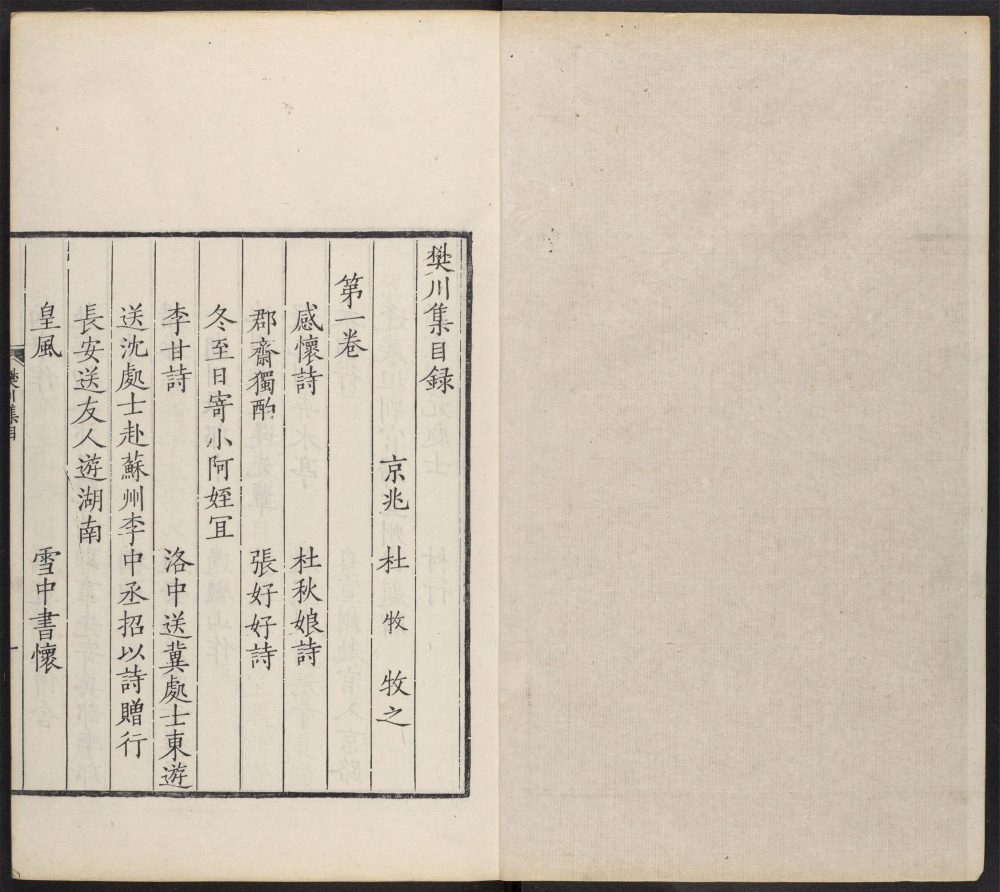 樊川集目録
京兆 杜 牧 牧之
第一卷
感懷詩 杜秋娘詩
郡齋獨酌 張好好詩
冬至日寄小阿姪宜
李甘詩 洛中送冀處士東遊
送沈處士赴蘇州李中丞招以詩贈行
長安送友人遊湖南
皇風 雪中書懷
樊川集目
一